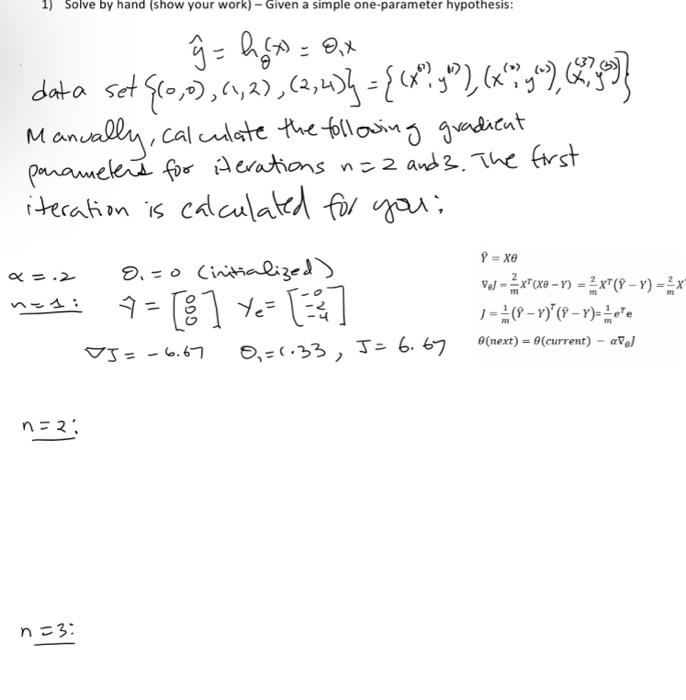 1) Solve by hand (show your work) – Given a simple one-parameter hypothesis:
ŷ = h_θ(x) = θ₁x
data set {(0,0), (1,2), (2,4)} = {(x⁽¹⁾, y⁽¹⁾), (x⁽²⁾, y⁽²⁾), (x⁽³⁾, y⁽³⁾)}
Manually, calculate the following gradient
parameters for iterations n=2 and 3. The first
iteration is calculated for you:
α = .2 θ₁ = 0 (initialized)
n=1: Ŷ = [0 0 0] Yₑ = [-0 -2 -4]
∇J = -6.67 θ₁=1.33, J = 6.67
Ŷ = Xθ
∇_θJ = 2/m Xᵀ(Xθ − Y) = 2/m Xᵀ(Ŷ − Y) = 2/m X
J = 1/m (Ŷ − Y)ᵀ(Ŷ − Y)= 1/m eᵀe
θ(next) = θ(current) − α∇_θJ
n=2:
n=3: